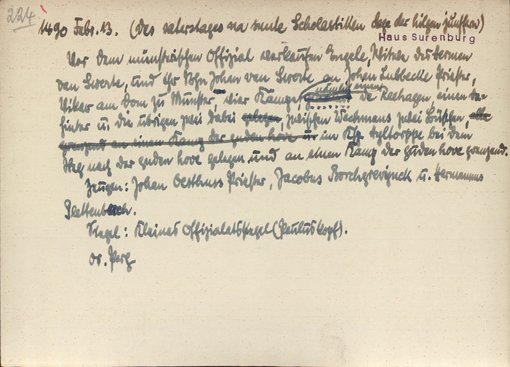 224
1490 Febr. 13. (Des saterstages na sunte Scholastiken dage der hilgen junffern)
Haus Surenburg
Vor dem münsterschen Offizial verkaufen Engele, Witwe des Hermen
van Swoste, und ihr Sohn Johan van Swoste an Johan Lubbecke Priester,
Vikar am Dom zu Münster, vier Kämpe, nämlich einen de Reehagen, einen da-
hinter u. die übrigen zwei dabei gelegen, zwischen Wechmans zwei Büschen alle
grenzend an einen Kamp der guden hove u. an Ksp. by dem
Steg nach der guden hove gelegen und an einen Kamp der guden hove grenzend.
Zeugen: Johan Oesthues Priester, Jacobus Borchgrevynck u. Hermannus
Plettenbrech.
Siegel: Kleines Offizialatssiegel (Pauluskopf).
Or. Perg